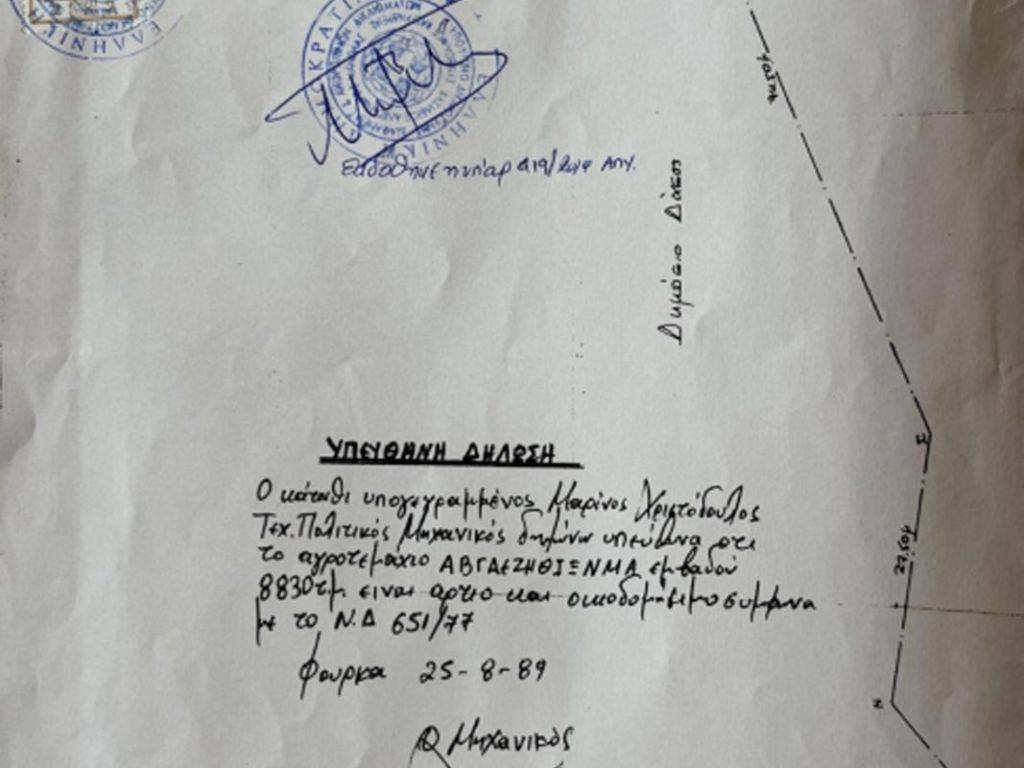 ΕΛΛΗΝΙΚ
Δημόσιο Δάσος
ΥΠΕΥΘΗΝΗ ΔΗΛΩΣΗ
Ο κάτωθι υπογεγραμμένος Μαρίνος Χριστόδουλος
Τεχ. Πολιτικός Μηχανικός δηλώνω υπεύθυνα οτι
το αγροτεμάχιο ΑΒΓΔΕΖΗΘΙΞΝΜΑ εμβαδού
8830τμ ειναι αρτιο και οικοδομήσιμο συμφωνα
με το Ν.Δ 651/77
Φούρκα 25-8-89
Ο Μηχανικός
27,50μ
Ξ
Ν